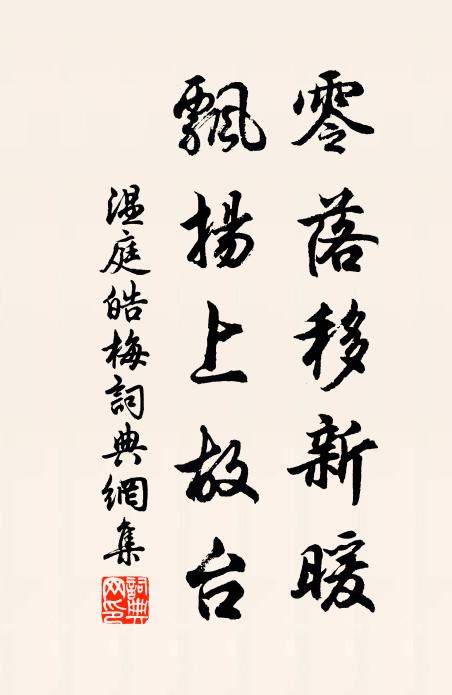 零落移新暖
飄揚上故台
温庭皓梅詞典網集
詞典網印